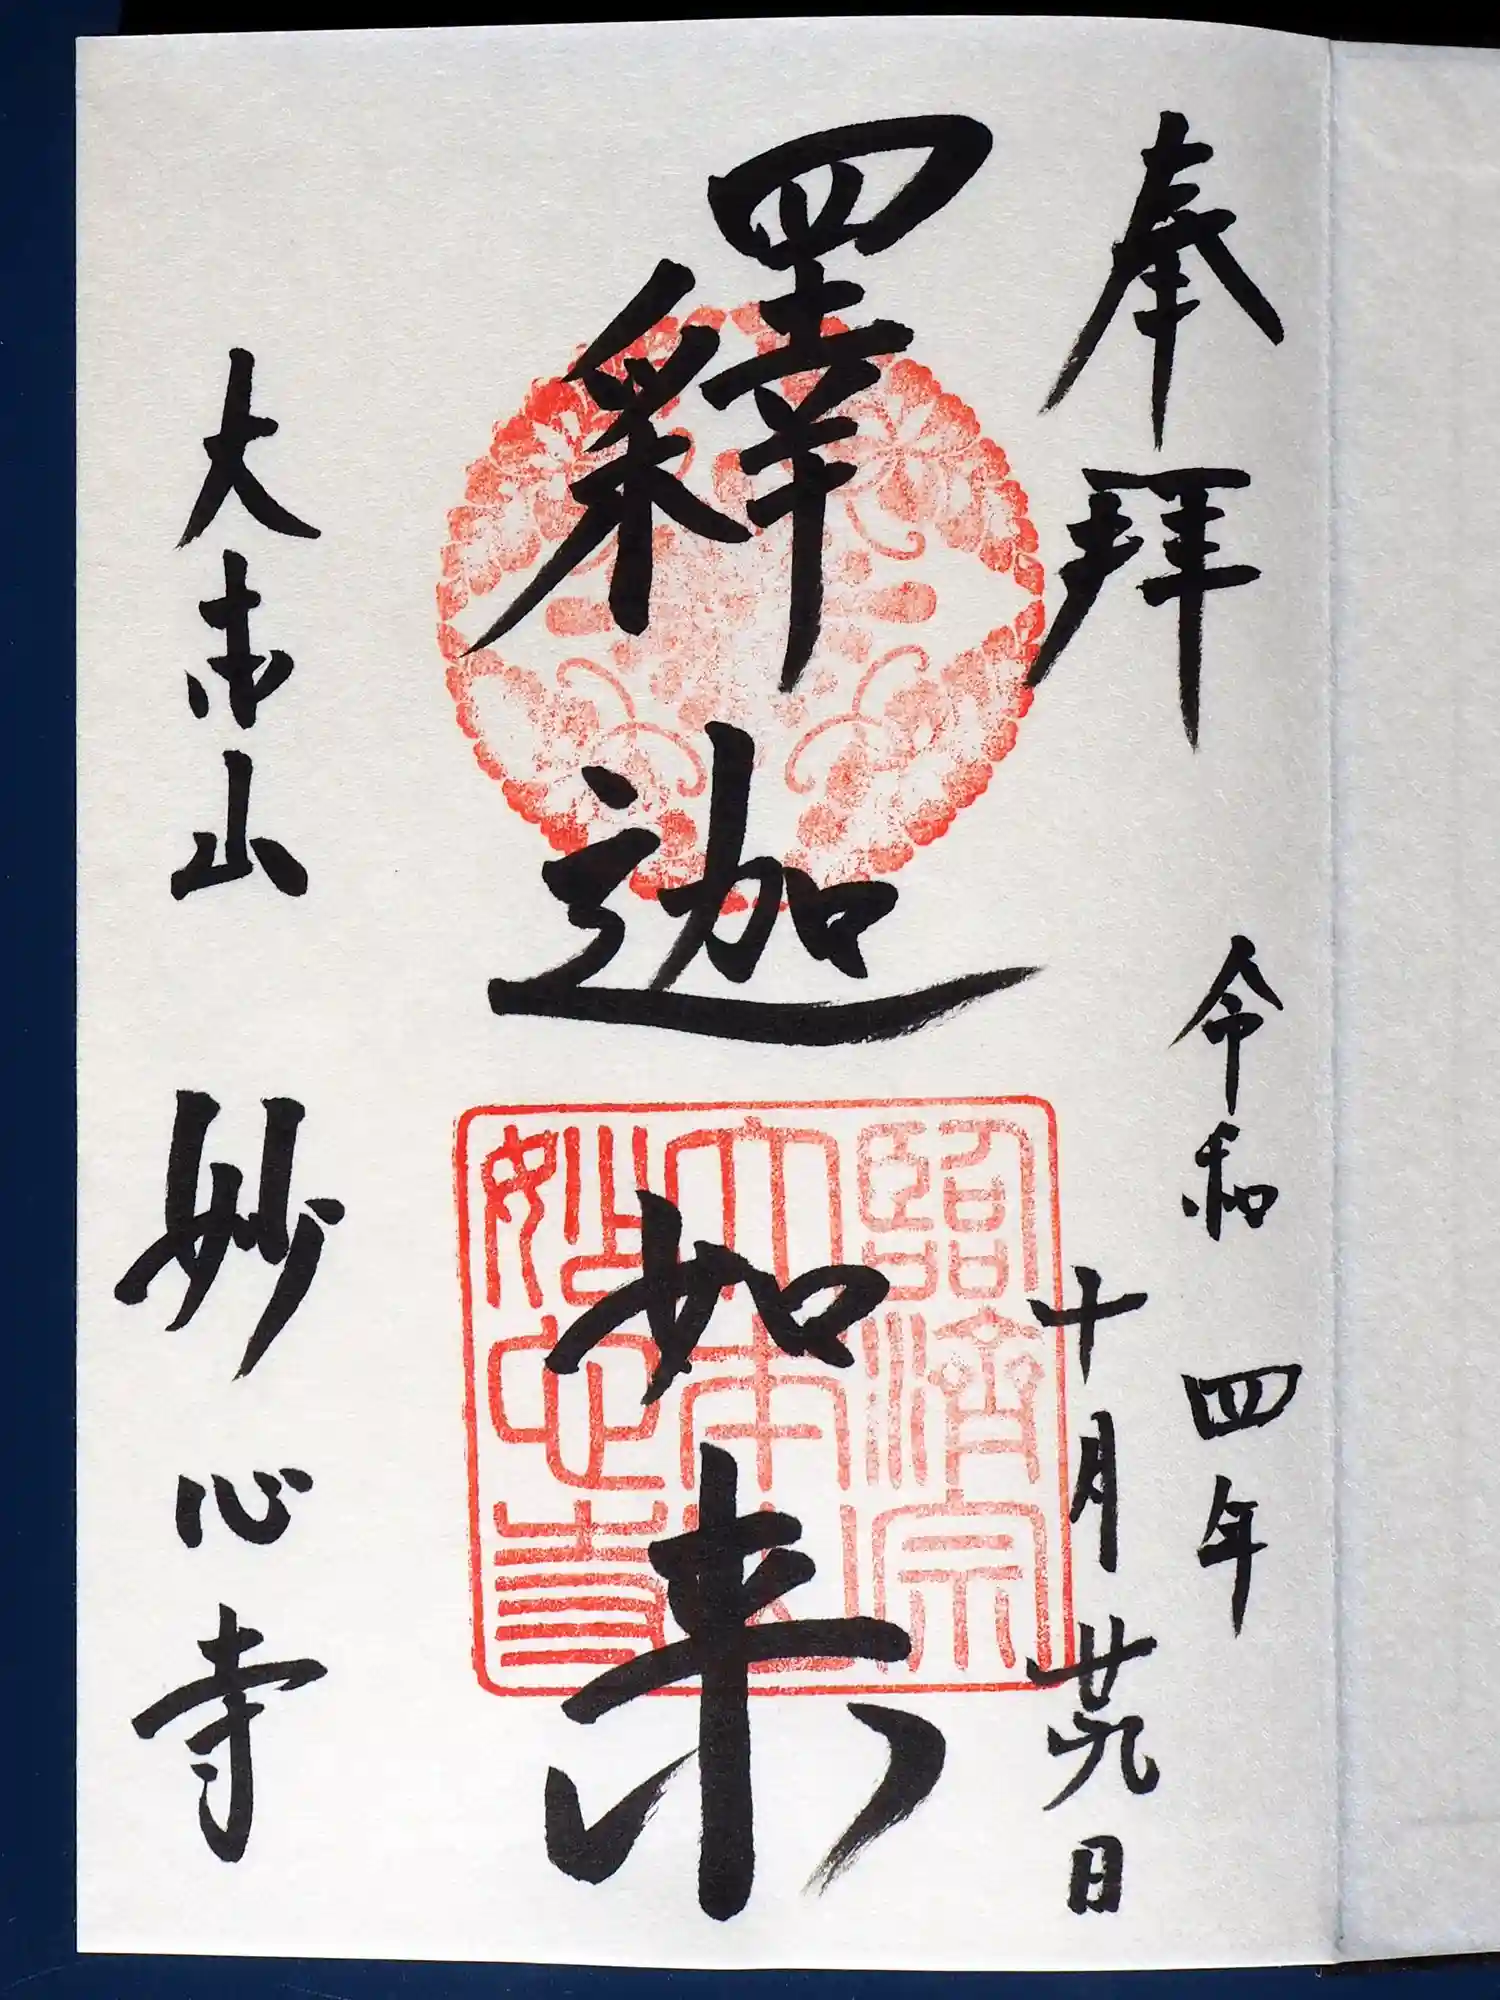 奉拝
令和四年
十月廿九日
釋迦如来
臨濟宗
大本山
妙心寺
大本山 妙心寺